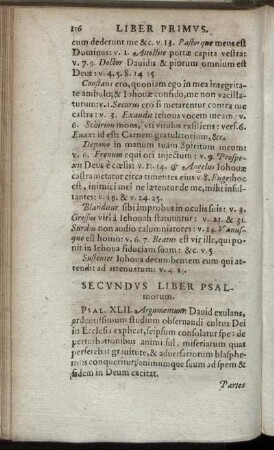 116 LIBER PRIMVS.
cum dederunt me &c. v. 13. Pastor que meus est
Dominus: v. 1. Attollite portæ capita vestra:
v. 7. 9. Doctor Davidis & piorum omnium est
Deus: v. 4. 5. 8. 14 15.
Constans ero, quoniam ego in mea integrita-
te ambulo; & Iehovæ confido, me non vacilla-
turum: v. 1. Securus ero si metarentur contra me
castra: v. 3. Exaudi Iehova vocem meam: v.
6. Schirion mons, ut vitulus exsiliens: vers. 6.
Euax: id est: Carmen gratulatorium, &c.
Depono in manum tuam Spiritum meum:
v. 6. Frenum equi ori injectum: v. 9. Prospe-
Deus è cœlis: v. 13. 14. & Angelus Iehovæ
castrametatur circa timentes eius v 8. Euge hoc
est, inimici mei ne lætentur de me, mihi insul-
tantes: v. 19. & v. 24. 25.
Blanditur sibi improbus in oculis suis: v. 3.
Gressus viri à Iehovah statuuntur: v. 23. & 31.
Surdus non audio calumniatores: v. 14. Vanus-
que est homo: v. 6. 7. Beatus est vir ille, qui po-
nit in Iehova fiduciam suam: &c. v. 5.
Sustentet Iehova decumbentem eum qui at-
tendit ad attenuatum: v. 4 1.
SECVNDVS LIBER PSAL-
morum.
PSAL. XLII. Argumentum: David exulans,
ardentissimum studium observandi cultus Dei
in Ecclesia explicat, seipsum consulatur spe: de
perturbationibus animi sui, miseriarum quas
perferebat gravitate, & adversariorum blasphe-
miis conqueritur; animumque suum ad spem &
fidem in Deum excitat.
Partes